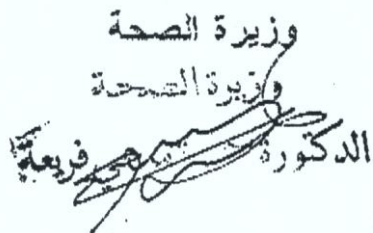 وزيرة الصحة
وزيرة الصحة
الدكتورة فريعة